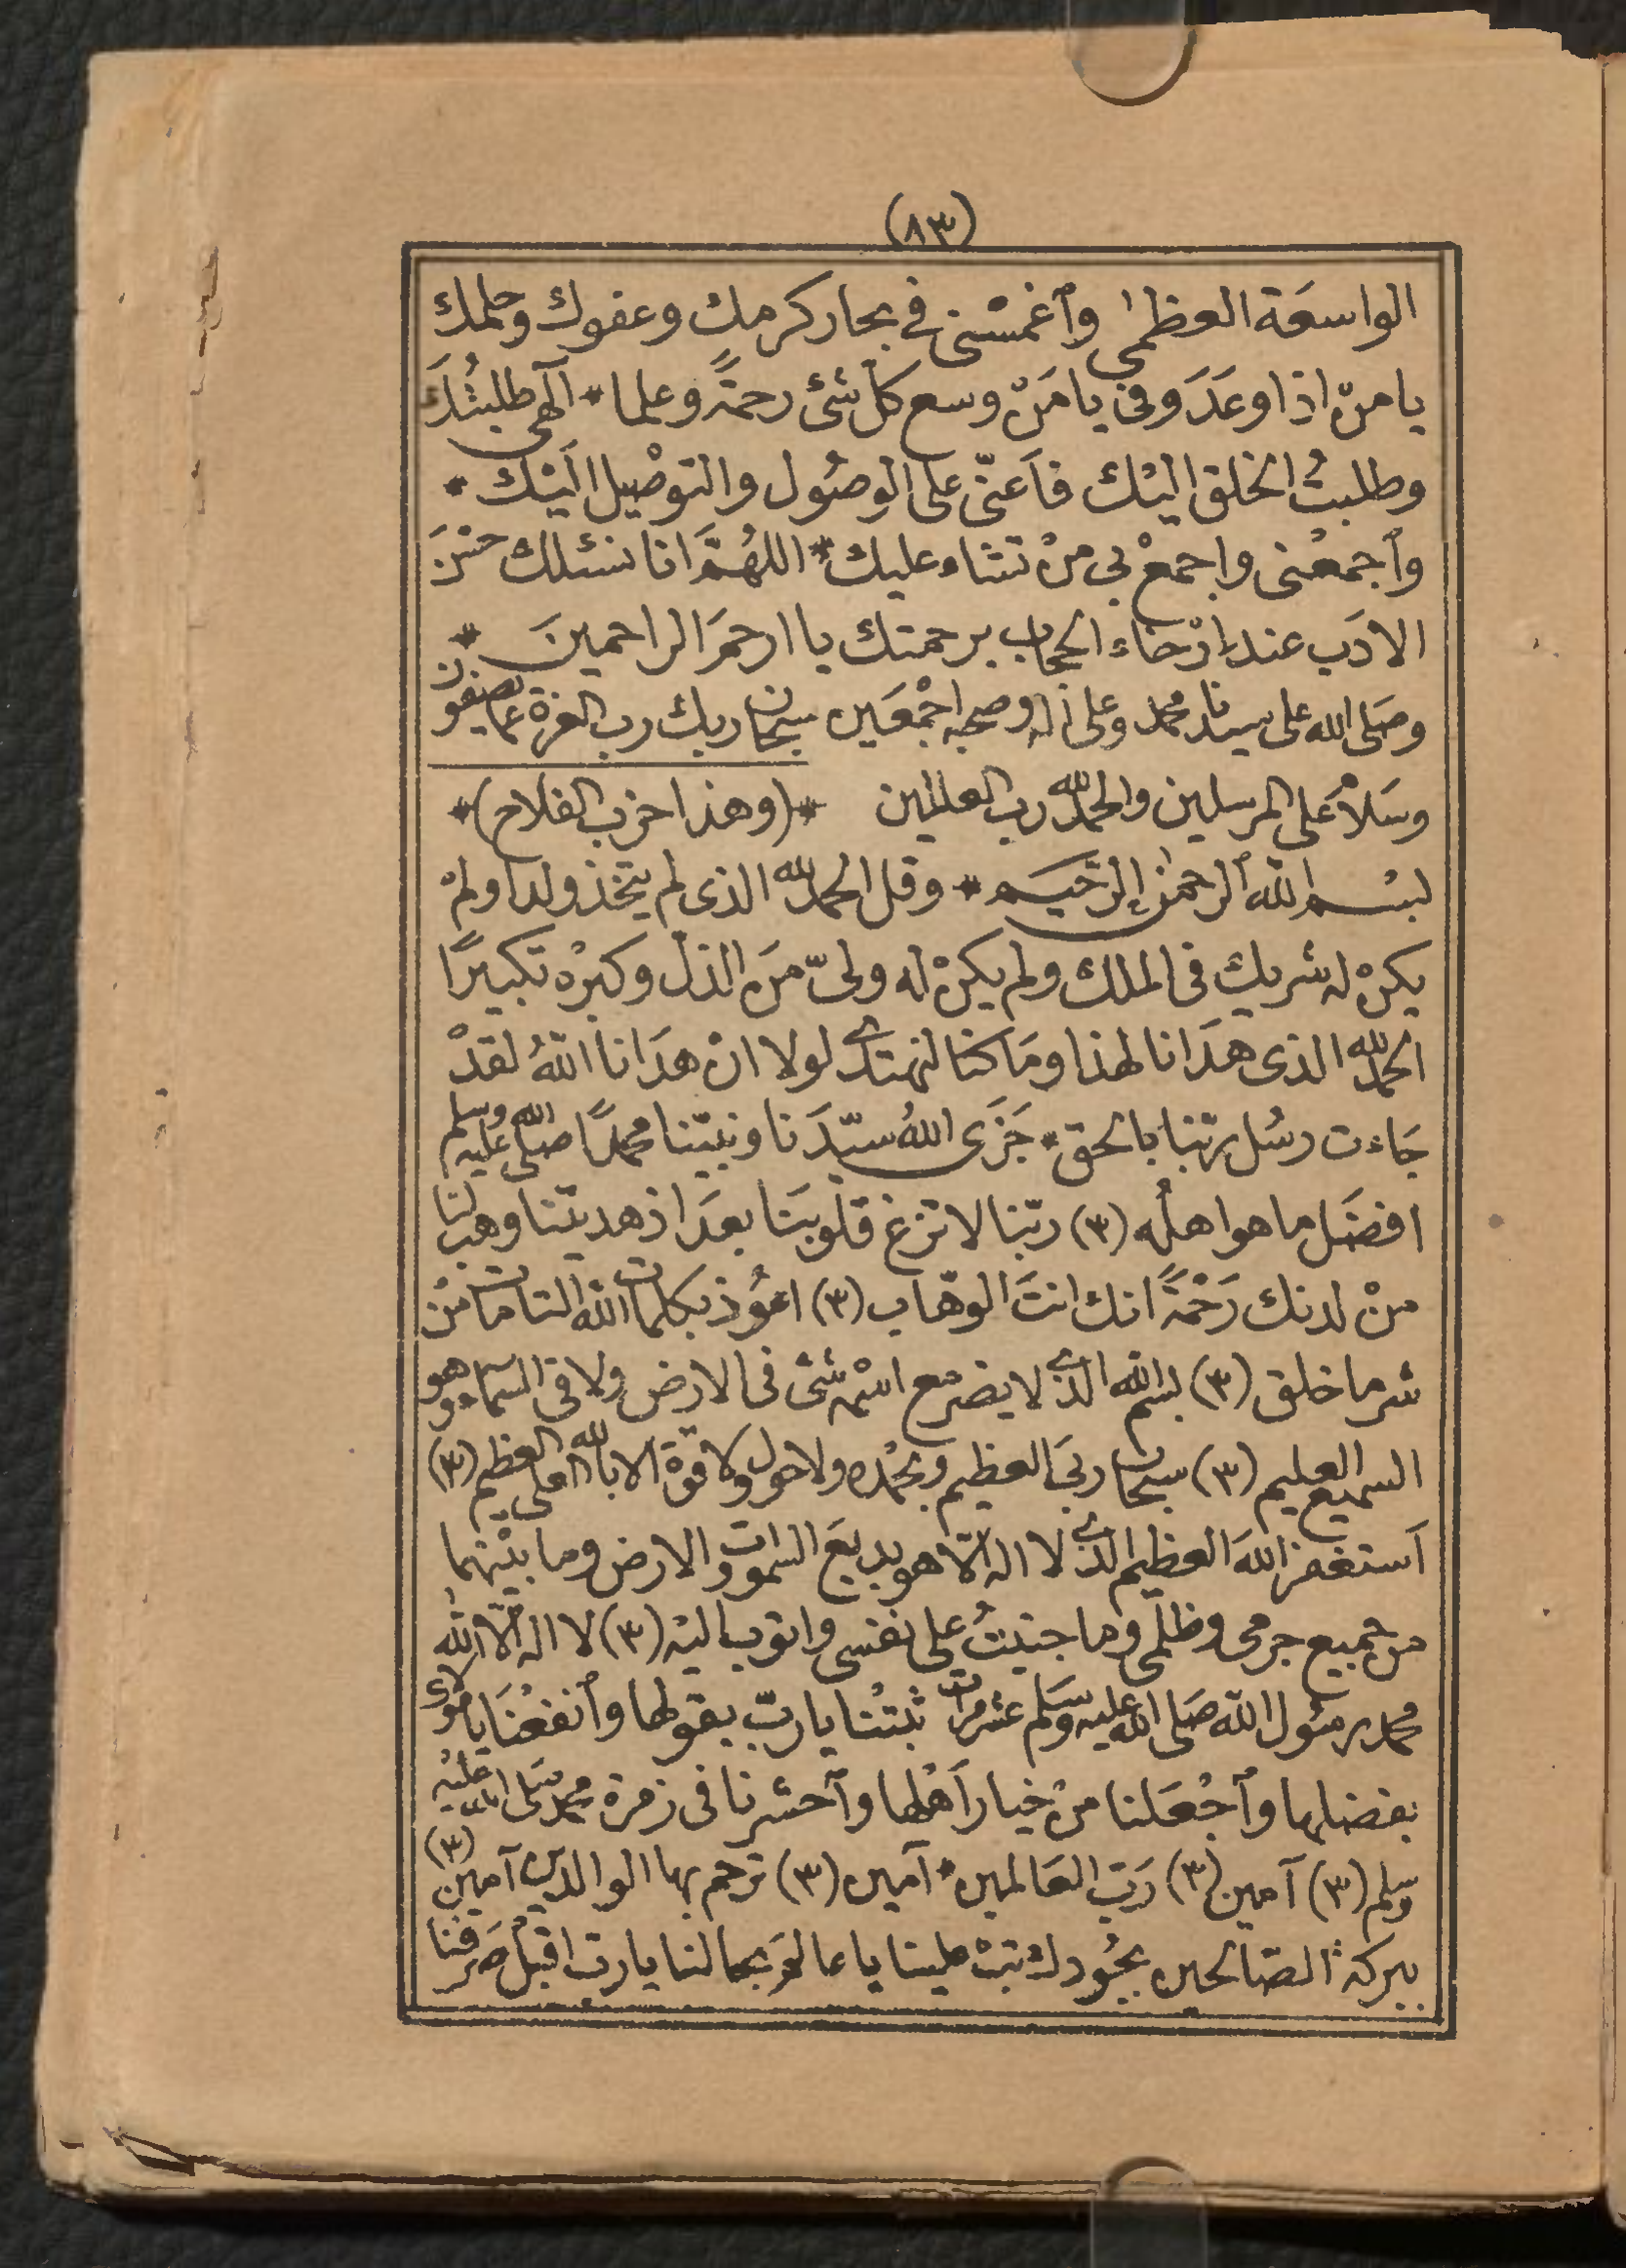 (٨٣)
الواسعَة العظمىٰ وٱغمسْنى فى بحار كرمك وعفوك وحلمك
يا منْ اذا وعَدَ وفى يا مَنْ وسع كل شئ رحمةً وعلما * آلهى طلبتُكَ
وطلبتُ الخلق اليْك فاَعنّى على الوصُول والتوصْيل اليْك *
وٱجمعْنى واجمعْ بى منْ تشاء عليك * اللهُمَّ انا نسئلك حسْنَ
الادَب عند إرْخاء الحجاب برحمتك يا ارحمَ الراحمينَ *
وصَلى الله على سيدنا محمد وعلى آله وصحبه اجْمعَين سبحان ربك رب العزة عما يصفون
وسَلامٌ على المرسلين والحمد لله رب العالمين * (وهذا حزب الفلاح) *
بسْم الله ٱلرحمٰن الرَّحيم * وقل الحمد لله الذى لم يتخذ ولدا ولمْ
يكنْ له شريك فى الملك ولم يكنْ له ولىّ منَ الذلّ وكبرْه تكبيرًا
الحمد لله الذى هدَانا لهذا ومَا كنا لنهتدى لولا انْ هدَانا اللهُ لقدْ
جَاءت رسُل ربّنا بالحق * جَزَى اللهُ سيّدَنا ونبيّنا محمدًا صلى الله عليْه وسلم
افضَل ما هو اهلُه (٣) ربّنا لا تزغ قلوبَنا بعدَ اذ هديتَنا وهب لنا
منْ لدنك رَحْمَةً انك انتَ الوهّاب (٣) اعُوذ بكلمات الله التامات منْ
شر ما خلق (٣) بسْم الله الذى لا يضر مع اسْمه شئ فى الارض ولا فى السماء وهو
السميع العليم (٣) سبحان ربىَ العظيم وبحمْده ولا حول ولا قوّة الا بالله العلى العظيم (٣)
اَستغفر اللهَ العظيم الذى لا اله الّا هو بديعَ السموات والارض وما بيْنهما
من جميع جرمى وظلمى وما جنيْتُ على نفسى واتوب اليْه (٣) لا اله الّا اللهُ
محمد رسُول الله صَلى الله عليه وسَلم عشر مرات ثبتْنا يا ربّ بقولها وٱنفعْنَا يا مولاى
بفضلها وٱجْعَلنا منْ خيار اَهْلها وٱحشرنا فى زمرة محمد صَلى الله عليْه
وسلم (٣) آمين (٣) رَبّ العَالمين * آمين (٣) ترحم بها الوالدين آمين (٣)
ببركة الصّالحين بجُودك تبْ علينا يا عالمَ بحالنا يا رب اقبلْ صَرفنا